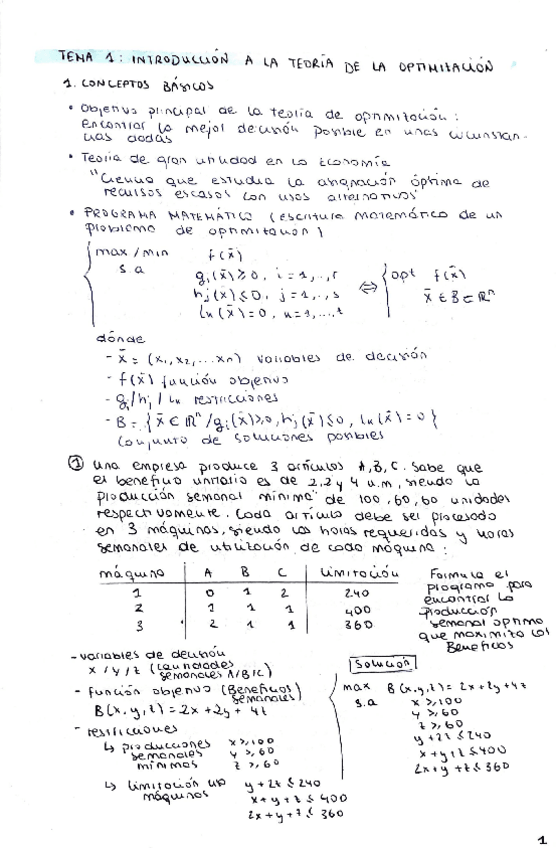 TEMA 1: INTRODUCCIÓN A LA TEORÍA DE LA OPTIMIZACIÓN
1. CONCEPTOS BÁSICOS
• Objetivo principal de la teoría de optimización:
encontrar la mejor decisión posible en unas circunstan-
cias dadas
• Teoría de gran utilidad en la Economía
"Ciencia que estudia la asignación óptima de
recursos escasos con usos alternativos"
• PROGRAMA MATEMÁTICO (escritura matemática de un
problema de optimización)
max/min f(x̄)
s.a gi(x̄)≥0, i=1,..,r
hj(x̄)≤0, j=1,..,s
lk(x̄)=0, k=1,...,t
⇔ { opt f(x̄)
x̄ ∈ B ⊂ ℝⁿ
dónde
- x̄ = (x₁, x₂, ... xn) variables de decisión
- f(x̄) función objetivo
- gi/hj/lk restricciones
- B = { x̄ ∈ ℝⁿ / gi(x̄)≥0, hj(x̄)≤0, lk(x̄)=0 }
Conjunto de soluciones posibles
① una empresa produce 3 artículos A, B, C. Sabe que
el beneficio unitario es de 2, 2 y 4 u.m, siendo la
producción semanal mínima de 100, 60, 60 unidades
respectivamente. Cada artículo debe ser procesado
en 3 máquinas, siendo las horas requeridas y horas
semanales de utilización de cada máquina:
máquina A B C limitación
1 0 1 2 240
2 1 1 1 400
3 2 1 1 360
Formula el
programa para
encontrar la
producción
semanal óptima
que maximiza los
Beneficios
- variables de decisión
x / y / z (cantidades
semanales A/B/C)
- función objetivo (Beneficios
semanales)
B(x,y,z) = 2x + 2y + 4z
- restricciones
↳ producciones x≥100
semanales y≥60
mínimas z≥60
↳ limitación uso y+2z≤240
máquinas x+y+z≤400
2x+y+z≤360
Solución
max B(x,y,z) = 2x+2y+4z
s.a x≥100
y≥60
z≥60
y+2z≤240
x+y+z≤400
2x+y+z≤360
1